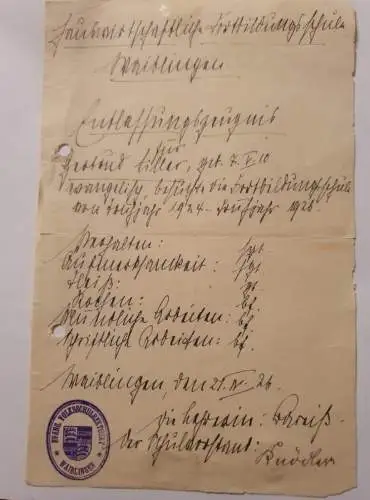 Hauswirtschaftliche Fortbildungsschule
Waiblingen
Entlassungszeugnis
für
Gertrud Eller, geb. 7. V. 10
evangelisch, besuchte die Fortbildungsschule
von Frühjahr 1924 - Frühjahr 1926.
Verhalten: sgt
Aufmerksamkeit: sgt
Fleiß: gt
Kochen: bf.
Mündliche Arbeiten: bf.
Schriftliche Arbeiten: bf.
Waiblingen, den 21. IV. 26.
Die Lehrerin:
Der Schulvorstand:
Knödler
EVANG. VOLKSSCHULREKTORAT
WAIBLINGEN